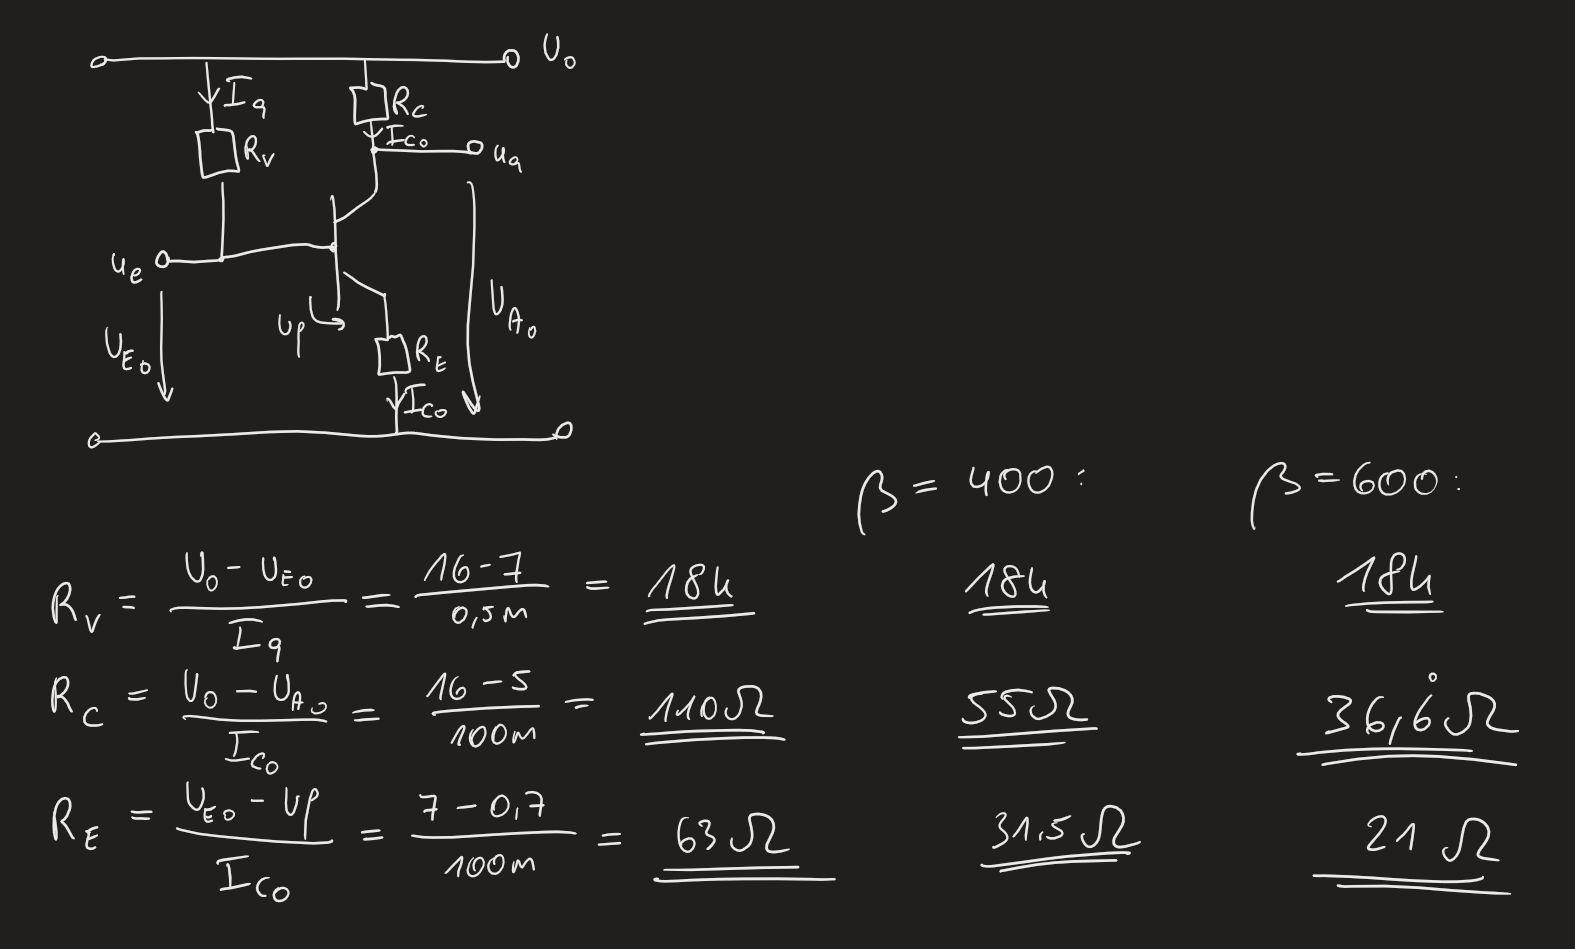 U₀
I_q
R_C
I_C₀
R_V
u_a
u_e
U_A₀
Up
U_E₀
R_E
I_C₀
β = 400 :
β = 600 :
R_V = (U₀ - U_E₀)/I_q = (16-7)/0,5m = 18k 18k 18k
R_C = (U₀ - U_A₀)/I_C₀ = (16-5)/100m = 110Ω 55Ω 36,6̇Ω
R_E = (U_E₀ - Up)/I_C₀ = (7-0,7)/100m = 63Ω 31,5Ω 21Ω